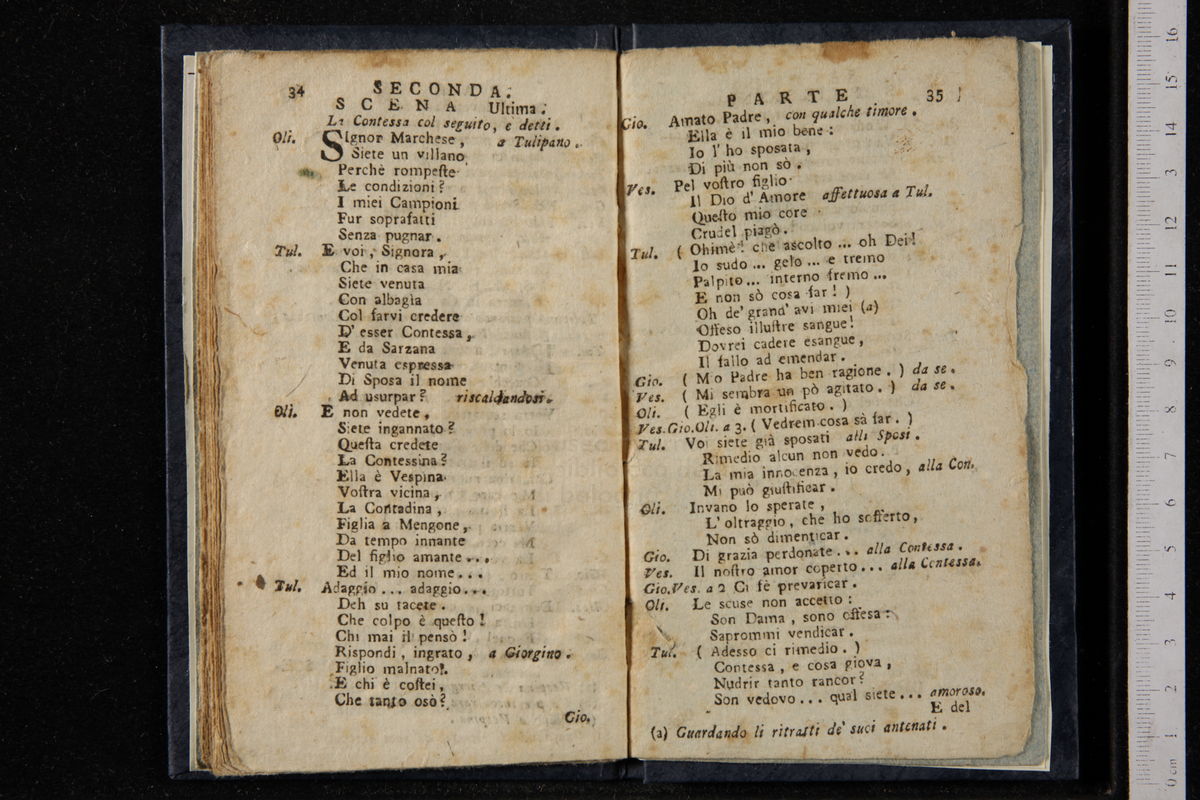 34 SECONDA.
SCENA Ultima.
La Contessa col seguito, e detti.
Oli. SIgnor Marchese, a Tulipano.
Siete un villano
Perchè rompeste
Le condizioni?
I miei Campioni
Fur soprafatti
Senza pugnar.
Tul. E voi, Signora,
Che in casa mia
Siete venuta
Con albagìa
Col farvi credere
D' esser Contessa,
E da Sarzana
Venuta espressa
Di Sposa il nome
Ad usurpar? riscaldandosi.
Oli. E non vedete,
Siete ingannato?
Questa credete
La Contessina?
Ella è Vespina
Vostra vicina,
La Contadina,
Figlia a Mengone,
Da tempo innante
Del figlio amante...
Ed il mio nome...
Tul. Adaggio... adaggio...
Deh su tacete.
Che colpo è questo!
Chi mai il pensò!
Rispondi, ingrato, a Giorgino.
Figlio malnato!
E chi è costei,
Che tanto osò?
Gio.
PARTE 35
Gio. Amato Padre, con qualche timore.
Ella è il mio bene:
Io l' ho sposata,
Di più non sò.
Ves. Pel vostro figlio
Il Dio d' Amore affettuosa a Tul.
Questo mio core
Crudel piagò.
Tul. (Ohimè! che ascolto... oh Dei!
Io sudo... gelo... e tremo
Palpito... interno fremo...
E non sò cosa far!)
Oh de' grand' avi miei (a)
Offeso illustre sangue!
Dovrei cadere esangue,
Il fallo ad emendar.
Gio. (Mio Padre ha ben ragione.) da se.
Ves. (Mi sembra un pò agitato.) da se.
Oli. (Egli è mortificato.)
Ves.Gio.Oli. a 3. (Vedrem cosa sà far.)
Tul. Voi siete già sposati alli Sposi.
Rimedio alcun non vedo.
La mia innocenza, io credo, alla Con.
Mi può giustificar.
Oli. Invano lo sperate,
L' oltraggio, che ho sofferto,
Non sò dimenticar.
Gio. Di grazia perdonate... alla Contessa.
Ves. Il nostro amor coperto... alla Contessa.
Gio.Ves. a 2 Ci fè prevaricar.
Oli. Le scuse non accetto:
Son Dama, sono offesa:
Saprommi vendicar.
Tul. (Adesso ci rimedio.)
Contessa, e cosa giova,
Nudrir tanto rancor?
Son vedovo... qual siete... amoroso.
E del
(a) Guardando li ritratti de' suoi antenati.